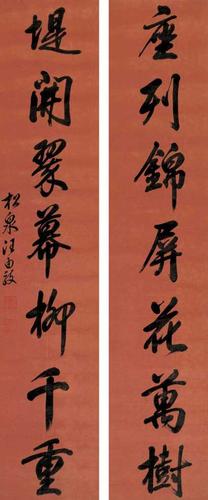 座列錦屏花萬樹
堤開翠幕柳千重
松泉汪由敦